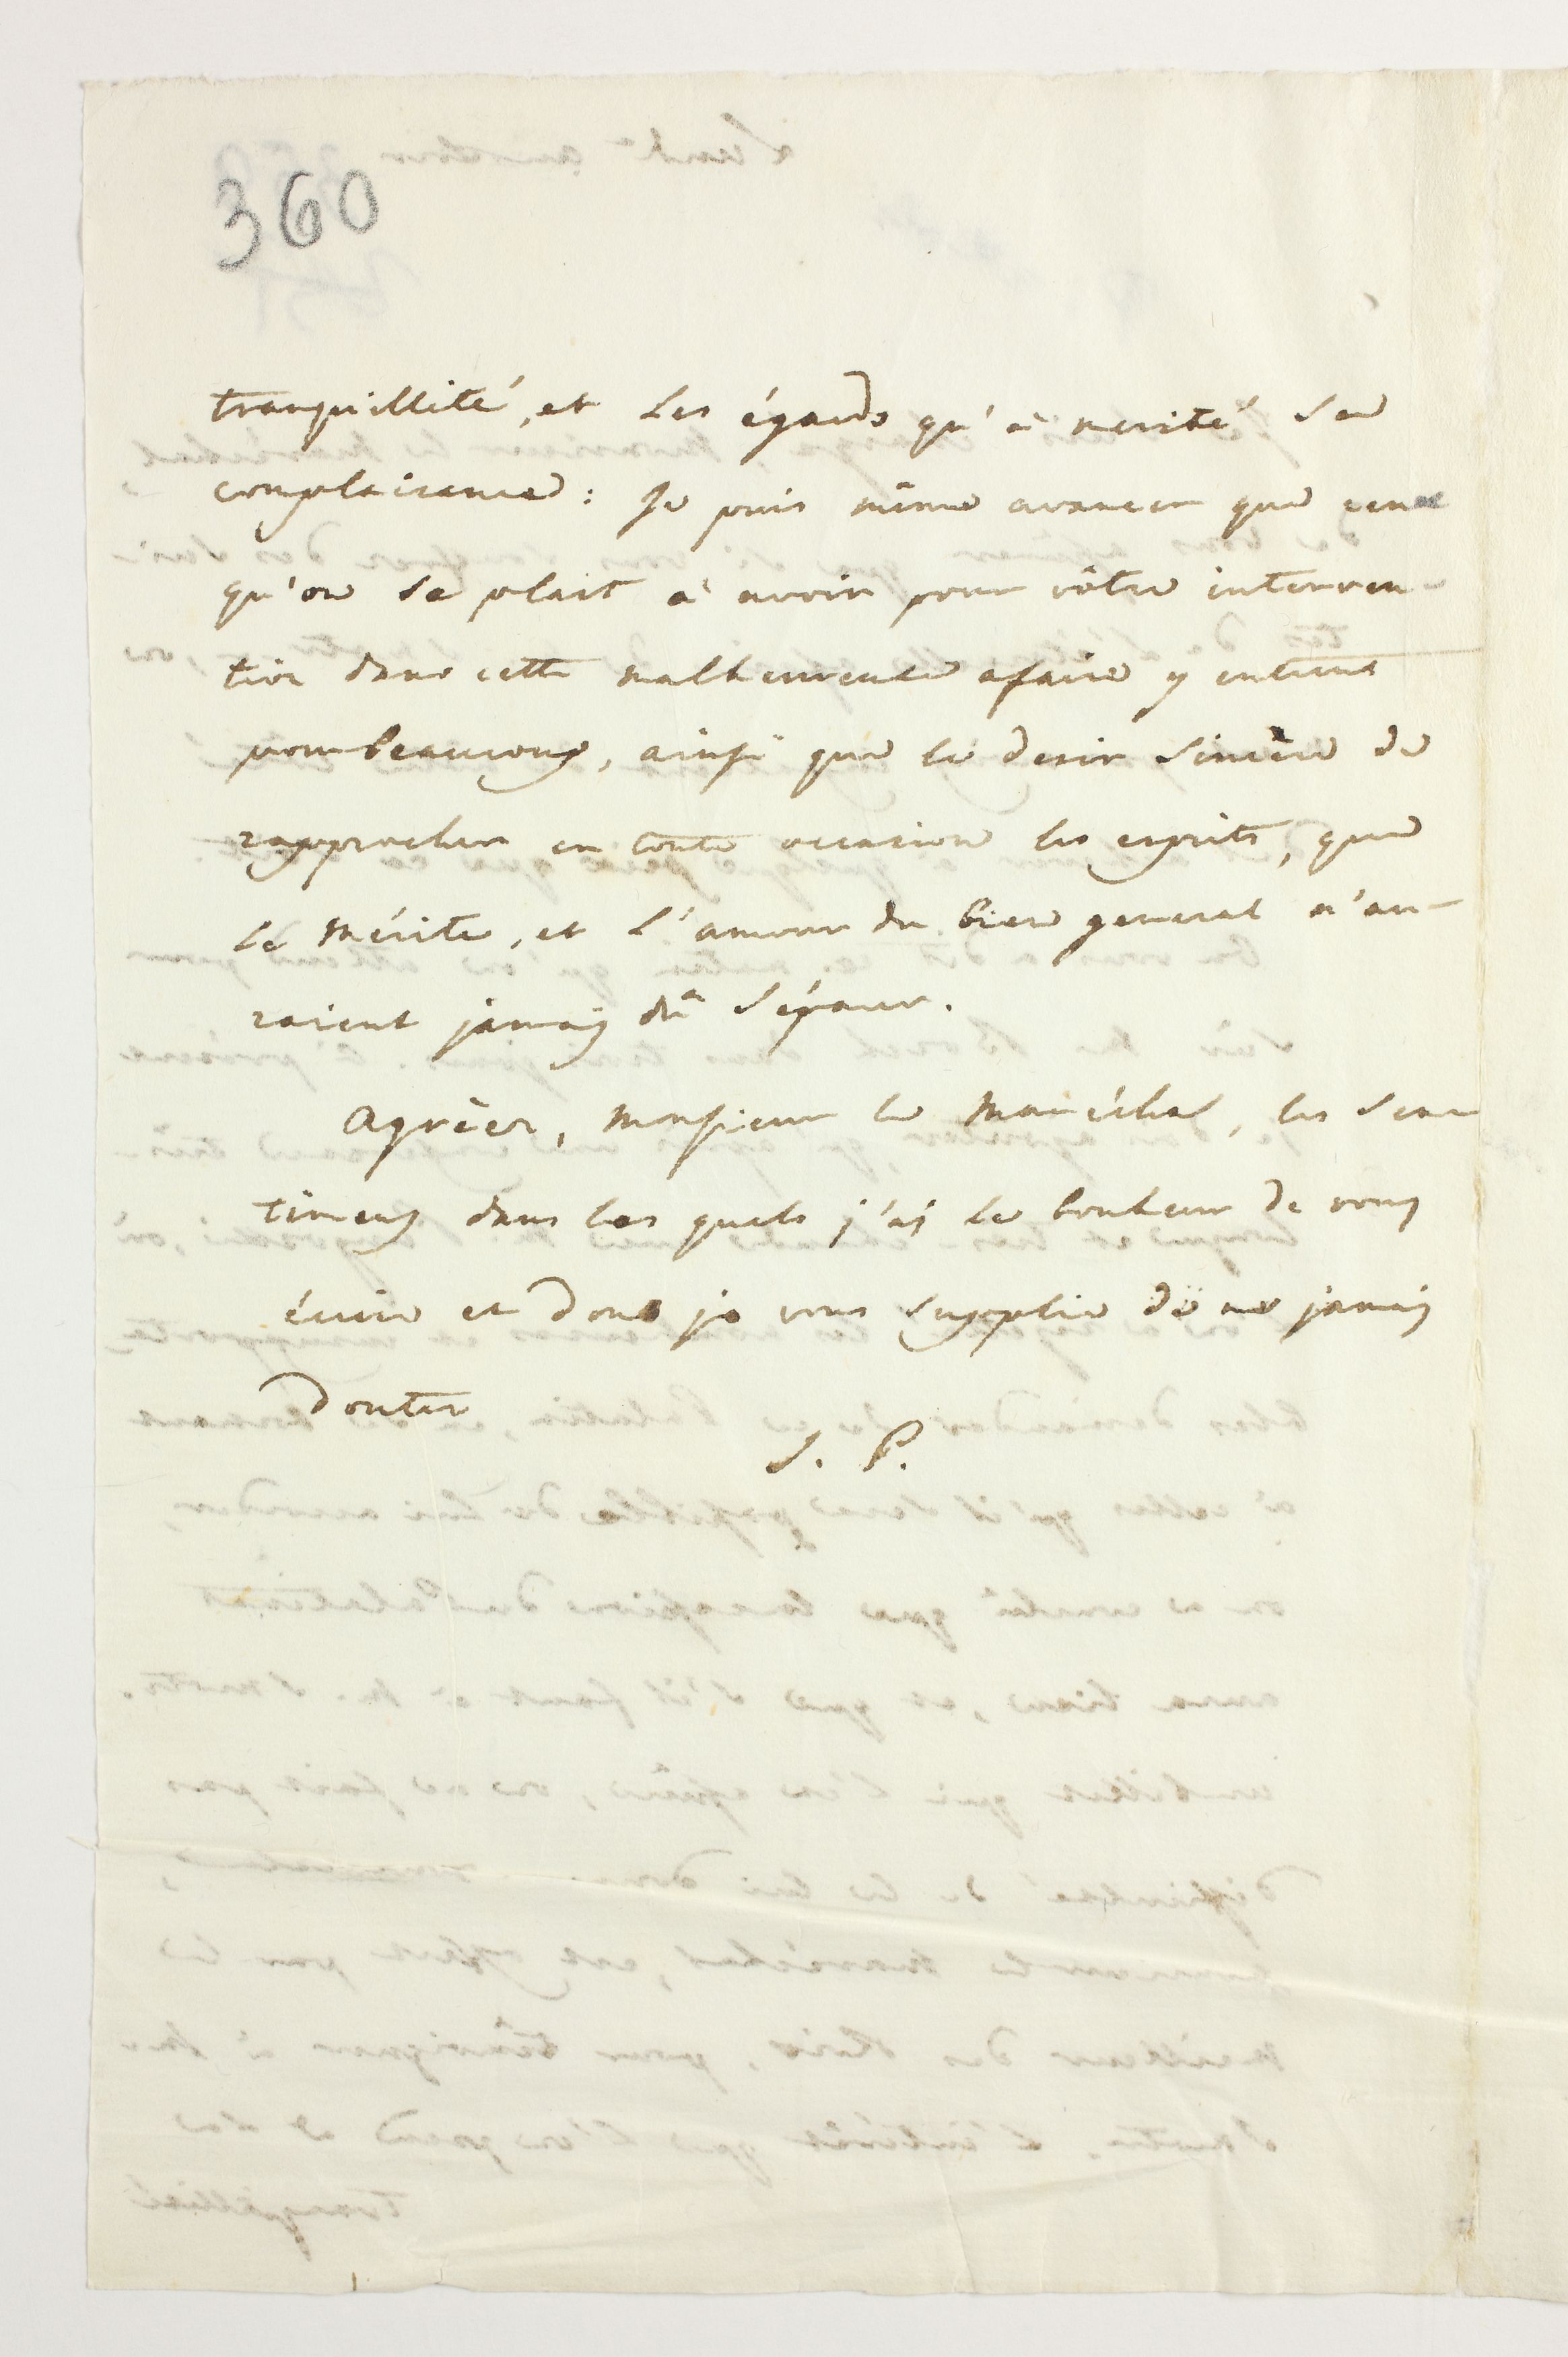 360
tranquillité, et les égards qu'a merité sa
complaisance : Je puis même avancer que ceux
qu'on se plait a avoir pour vôtre interven-
tion dans cette malheureuse afaire y entrent
pour beaucoup, ainsi que le desir sincère de
rapprocher en toute occasion les esprits, que
le mérite, et l'amour du bien general n'au-
raient jamais dû séparer.
Agréer, Monsieur le Maréchal, les sen-
timens dans les quels j'ai le bonheur de vous
écrire et dont je vous supplie de ne jamais
douter
S. P.